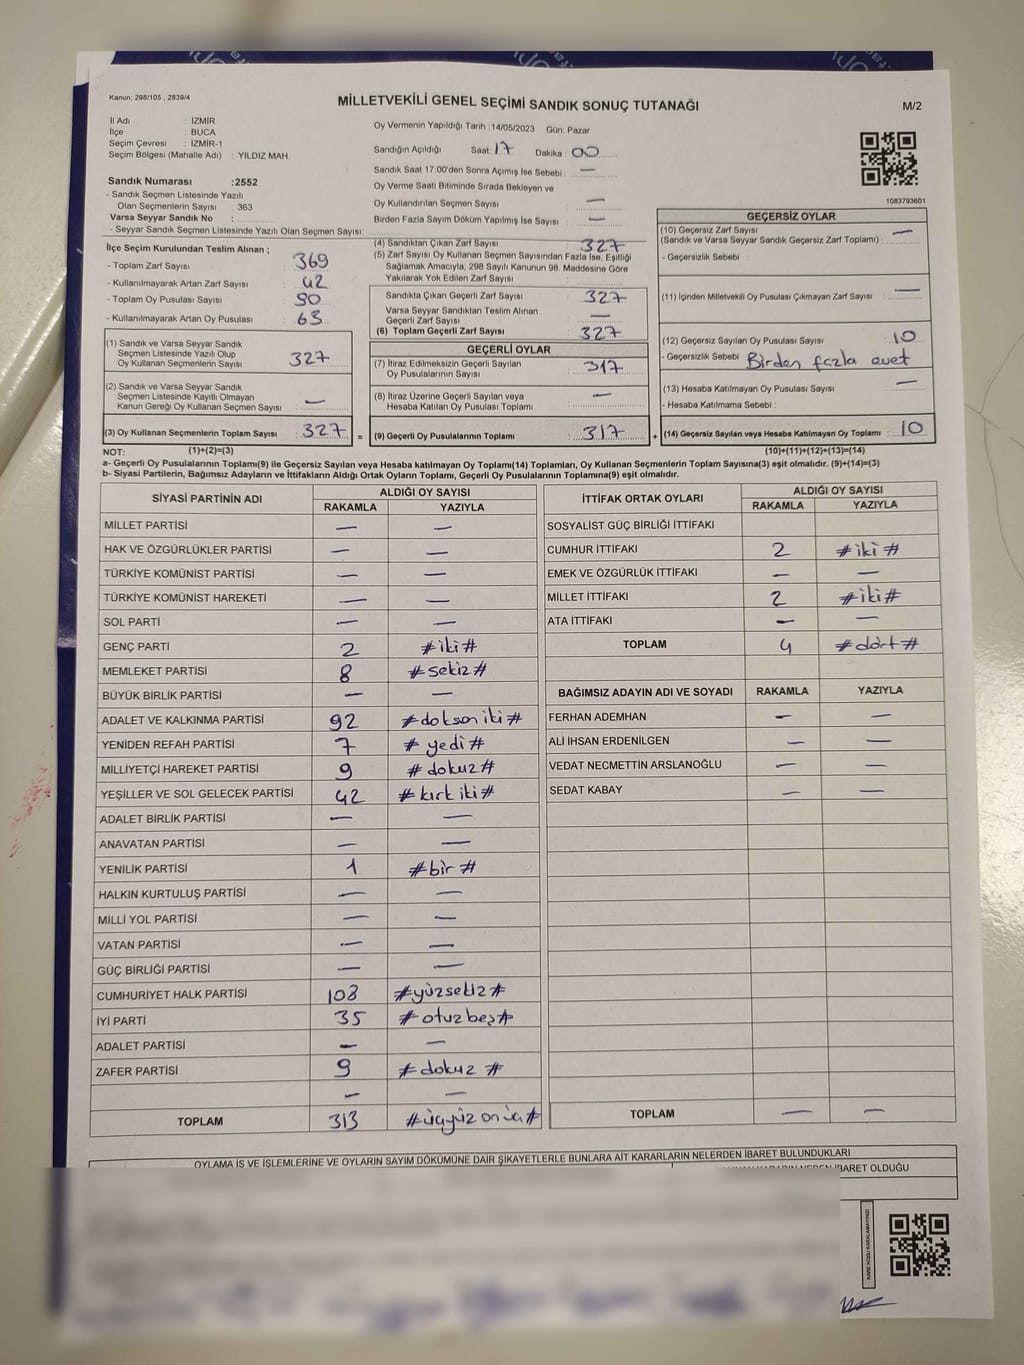 Kanun: 298/105 , 2839/4
MİLLETVEKİLİ GENEL SEÇİMİ SANDIK SONUÇ TUTANAĞI
M/2
İl Adı : İZMİR
İlçe : BUCA
Seçim Çevresi : İZMİR-1
Seçim Bölgesi (Mahalle Adı) : YILDIZ MAH.
Sandık Numarası :2552
- Sandık Seçmen Listesinde Yazılı
Olan Seçmenlerin Sayısı : 363
Varsa Seyyar Sandık No :
- Seyyar Sandık Seçmen Listesinde Yazılı Olan Seçmen Sayısı:
Oy Vermenin Yapıldığı Tarih :14/05/2023 Gün: Pazar
Sandığın Açıldığı Saat: 17 Dakika: 00
Sandık Saat 17:00'den Sonra Açımış İse Sebebi : —
Oy Verme Saati Bitiminde Sırada Bekleyen ve
Oy Kullandırılan Seçmen Sayısı : —
Birden Fazla Sayım Döküm Yapılmış İse Sayısı : —
1083793601
İlçe Seçim Kurulundan Teslim Alınan ;
- Toplam Zarf Sayısı : 369
- Kullanılmayarak Artan Zarf Sayısı : 42
- Toplam Oy Pusulası Sayısı :
- Kullanılmayarak Artan Oy Pusulası : 63
(1) Sandık ve Varsa Seyyar Sandık
Seçmen Listesinde Yazılı Olup
Oy Kullanan Seçmenlerin Sayısı : 327
(2) Sandık ve Varsa Seyyar Sandık
Seçmen Listesinde Kayıtlı Olmayan
Kanun Gereği Oy Kullanan Seçmen Sayısı : —
(3) Oy Kullanan Seçmenlerin Toplam Sayısı : 327
(4) Sandıktan Çıkan Zarf Sayısı : 327
(5) Zarf Sayısı Oy Kullanan Seçmen Sayısından Fazla İse, Eşitliği
Sağlamak Amacıyla, 298 Sayılı Kanunun 98. Maddesine Göre
Yakılarak Yok Edilen Zarf Sayısı :
Sandıkta Çıkan Geçerli Zarf Sayısı : 327
Varsa Seyyar Sandıktan Teslim Alınan
Geçerli Zarf Sayısı : —
(6) Toplam Geçerli Zarf Sayısı : 327
GEÇERLİ OYLAR
(7) İtiraz Edilmeksizin Geçerli Sayılan
Oy Pusulalarının Sayısı : 317
(8) İtiraz Üzerine Geçerli Sayılan veya
Hesaba Katılan Oy Pusulası Toplamı : —
= (9) Geçerli Oy Pusulalarının Toplamı : 317
GEÇERSİZ OYLAR
(10) Geçersiz Zarf Sayısı : —
(Sandık ve Varsa Seyyar Sandık Geçersiz Zarf Toplamı)
- Geçersizlik Sebebi :
(11) İçinden Milletvekili Oy Pusulası Çıkmayan Zarf Sayısı : —
(12) Geçersiz Sayılan Oy Pusulası Sayısı : 10
- Geçersizlik Sebebi : Birden fazla evet
(13) Hesaba Katılmayan Oy Pusulası Sayısı : —
- Hesaba Katılmama Sebebi :
+ (14) Geçersiz Sayılan veya Hesaba Katılmayan Oy Toplamı : 10
NOT: (1)+(2)=(3) (10)+(11)+(12)+(13)=(14)
a- Geçerli Oy Pusulalarının Toplamı(9) ile Geçersiz Sayılan veya Hesaba katılmayan Oy Toplam(14) Toplamları, Oy Kullanan Seçmenlerin Toplam Sayısına(3) eşit olmalıdır. (9)+(14)=(3)
b- Siyasi Partilerin, Bağımsız Adayların ve İttifakların Aldığı Ortak Oyların Toplamı, Geçerli Oy Pusulalarının Toplamına(9) eşit olmalıdır.
SİYASİ PARTİNİN ADI ALDIĞI OY SAYISI
RAKAMLA YAZIYLA
MİLLET PARTİSİ — —
HAK VE ÖZGÜRLÜKLER PARTİSİ — —
TÜRKİYE KOMÜNİST PARTİSİ — —
TÜRKİYE KOMÜNİST HAREKETİ — —
SOL PARTİ — —
GENÇ PARTİ 2 #iki#
MEMLEKET PARTİSİ 8 #sekiz#
BÜYÜK BİRLİK PARTİSİ — —
ADALET VE KALKINMA PARTİSİ 92 #doksan iki#
YENİDEN REFAH PARTİSİ 7 #yedi#
MİLLİYETÇİ HAREKET PARTİSİ 9 #dokuz#
YEŞİLLER VE SOL GELECEK PARTİSİ 42 #kırk iki#
ADALET BİRLİK PARTİSİ — —
ANAVATAN PARTİSİ — —
YENİLİK PARTİSİ 1 #bir#
HALKIN KURTULUŞ PARTİSİ — —
MİLLİ YOL PARTİSİ — —
VATAN PARTİSİ — —
GÜÇ BİRLİĞİ PARTİSİ — —
CUMHURİYET HALK PARTİSİ 108 #yüzsekiz#
İYİ PARTİ 35 #otuzbeş#
ADALET PARTİSİ — —
ZAFER PARTİSİ 9 #dokuz #
— —
TOPLAM 313 #üçyüz onüç#
İTTİFAK ORTAK OYLARI ALDIĞI OY SAYISI
RAKAMLA YAZIYLA
SOSYALİST GÜÇ BİRLİĞİ İTTİFAKI
CUMHUR İTTİFAKI 2 #iki#
EMEK VE ÖZGÜRLÜK İTTİFAKI — —
MİLLET İTTİFAKI 2 #iki#
ATA İTTİFAKI — —
TOPLAM 4 #dört#
BAĞIMSIZ ADAYIN ADI VE SOYADI RAKAMLA YAZIYLA
FERHAN ADEMHAN — —
ALİ İHSAN ERDENİLGEN — —
VEDAT NECMETTİN ARSLANOĞLU — —
SEDAT KABAY — —
TOPLAM — —
OYLAMA İŞ VE İŞLEMLERİNE VE OYLARIN SAYIM DÖKÜMÜNE DAİR ŞİKAYETLERLE BUNLARA AİT KARARLARIN NELERDEN İBARET BULUNDUKLARI
İBARET OLDUĞU
KARE KODU KARALAMAYINIZ!